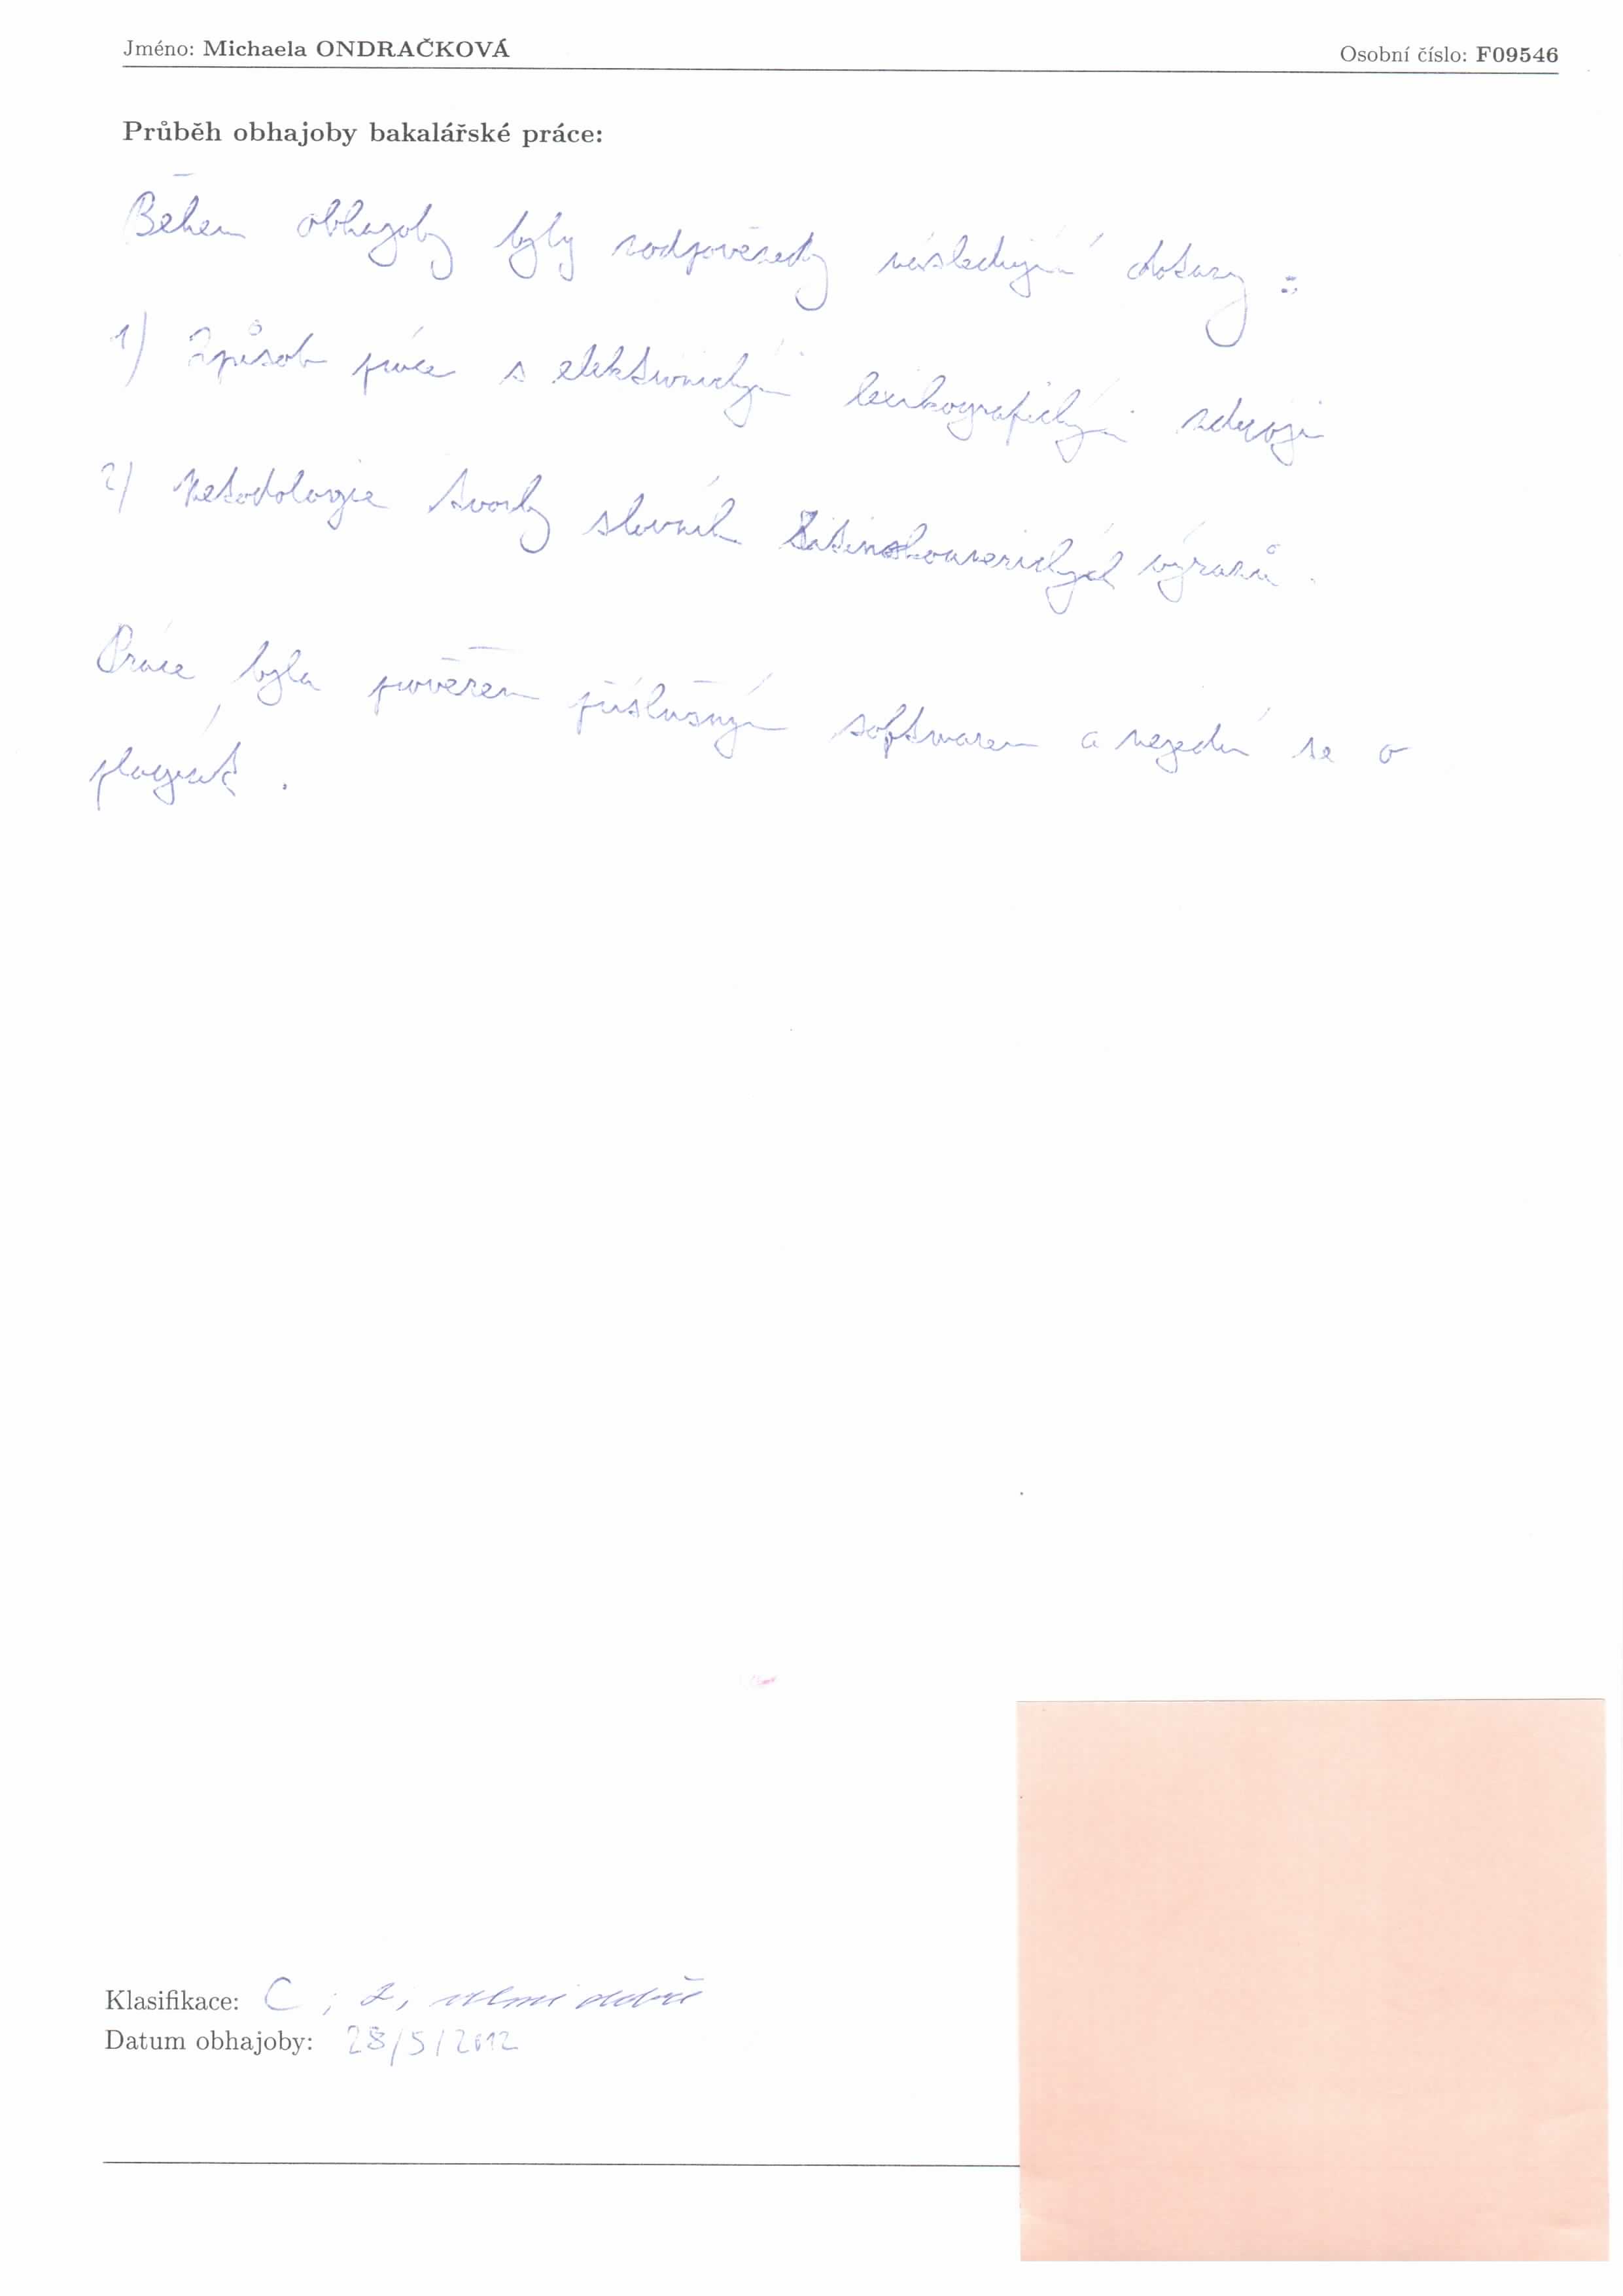 Jméno: Michaela ONDRAČKOVÁ Osobní číslo: F09546
Průběh obhajoby bakalářské práce:
Během obhajoby byly zodpovězeny následující dotazy :
1) Způsob práce s elektronickými lexikografickými zdroji
2) Metodologie tvorby slovník výrazů.
Práce byla prověřena příslušným softwarem a nejedná se o
plagiát.
Klasifikace: C ; 2, velmi dobře
Datum obhajoby: 28/5/2012